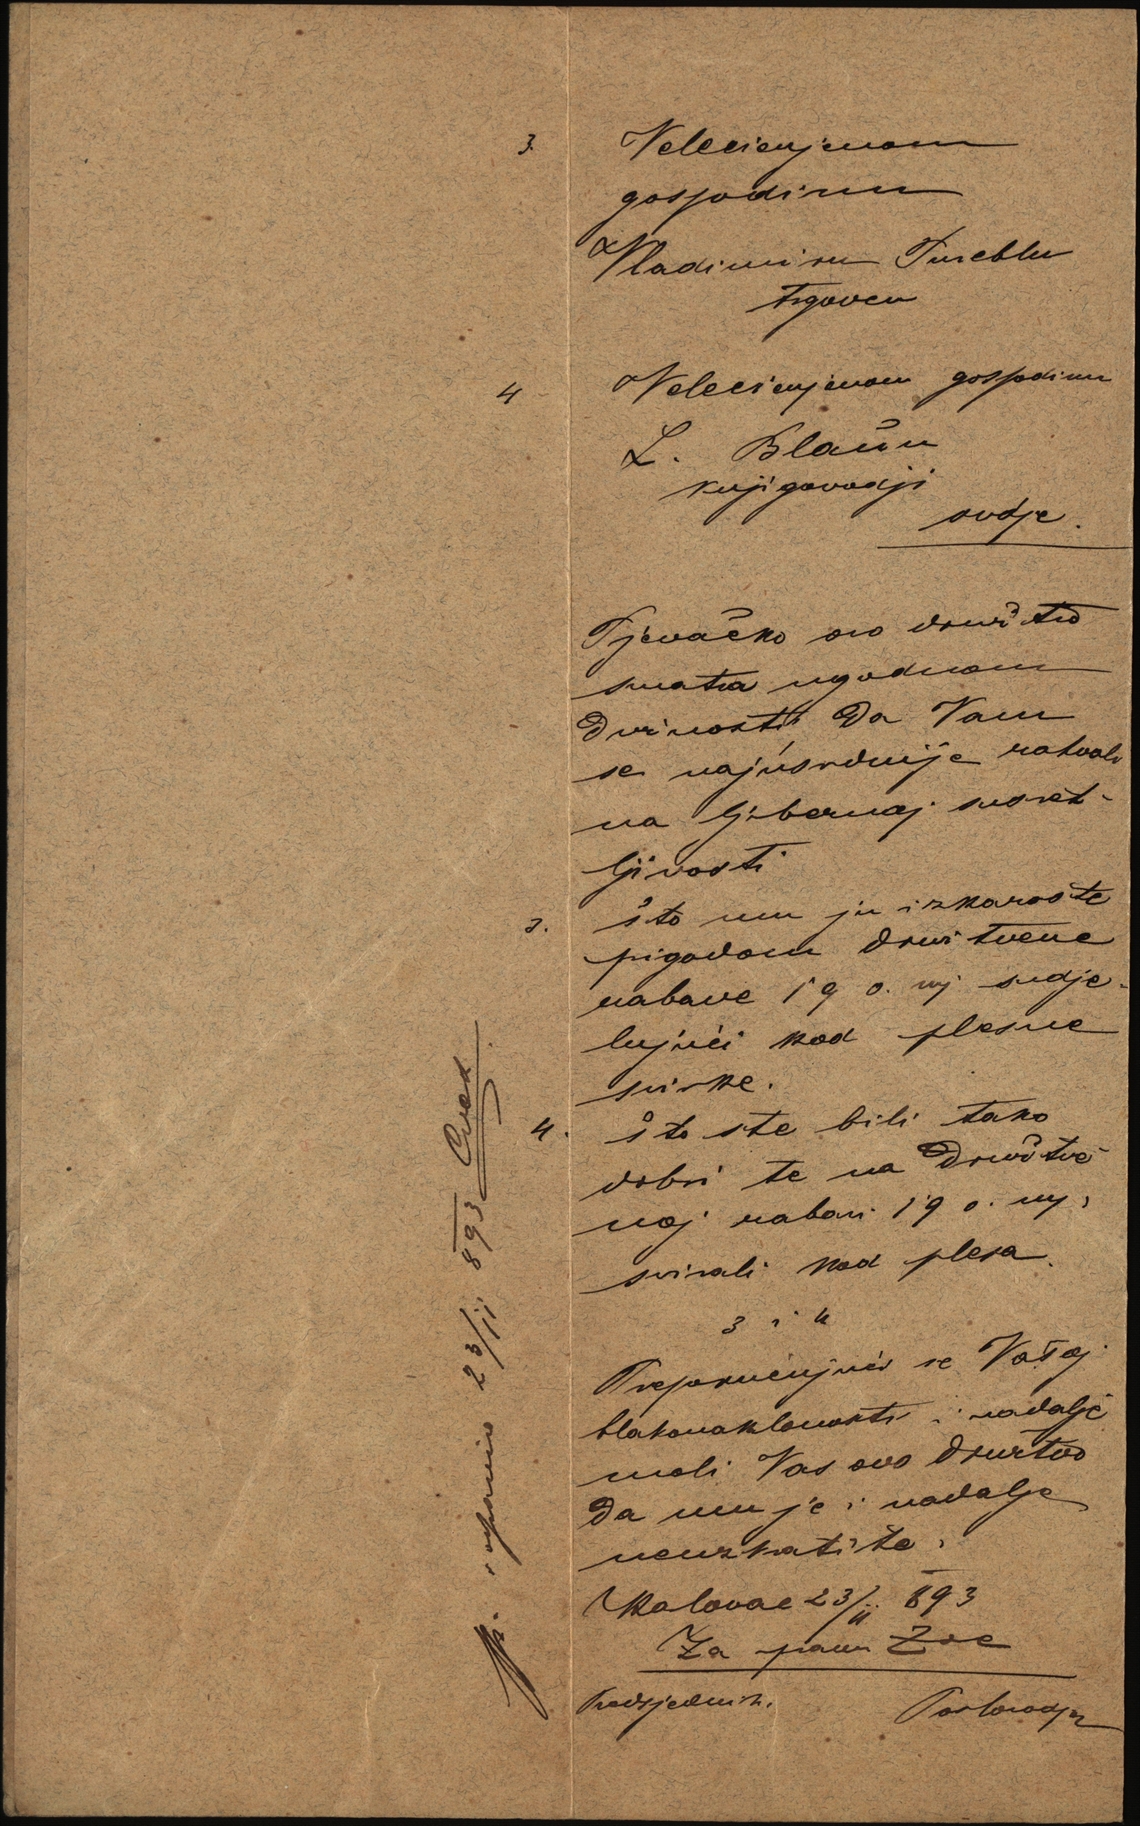 3.
Velecienjenom
gospodinu
Vladimiru Tureblu
trgovcu
4
Velecienjenom gospodinu
L. Blaūu
knjigovodji
ovdje.
Pjevačko ovo družtvo
smatra ugodnom
dužnosti da Vam
se najúsrdnije zahvali
na ljubeznoj susret-
ljivosti
3. što mu ju izkazaste
prigodom družtvene
zabave 19 o. mj sudje-
lujući kod plesne
svirke.
4. što ste bili tako
dobri te na družtve
noj zabavi 19 o. mj.
svirali kod plesa.
3 i 4
Preporučujući se Vašoj
blakonaklonosti i nadalje
moli Vas ovo družtvo
da mu je i nadalje
neuzkratite.
Karlovac 23/II 893
Za pjev. Zoe
Predsjednik.
Poslovodja
i odpravio 23/II 893